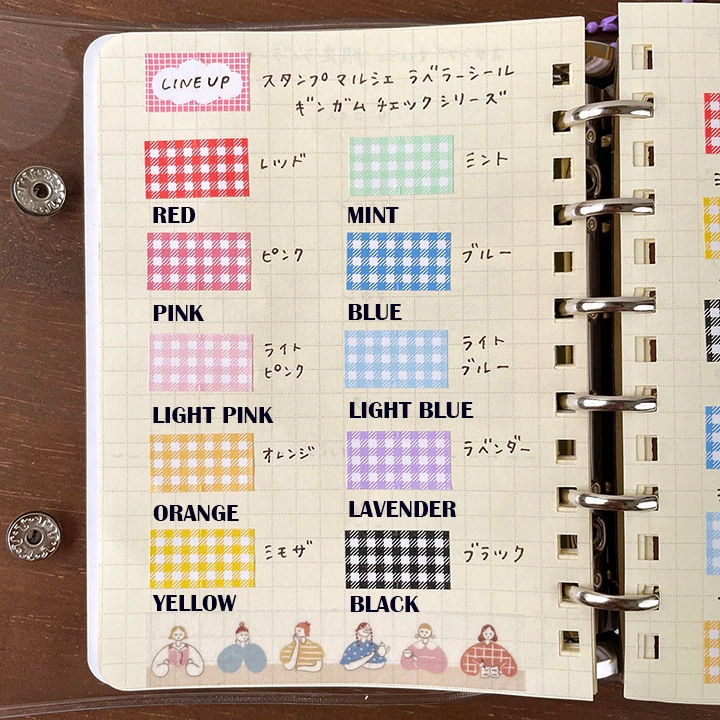 LINE UP
スタンプマルシェ ラベラーシール
ギンガム チェックシリーズ
レッド
RED
ミント
MINT
ピンク
PINK
ブルー
BLUE
ライト
ピンク
LIGHT PINK
ライト
ブルー
LIGHT BLUE
オレンジ
ORANGE
ラベンダー
LAVENDER
ミモザ
YELLOW
ブラック
BLACK